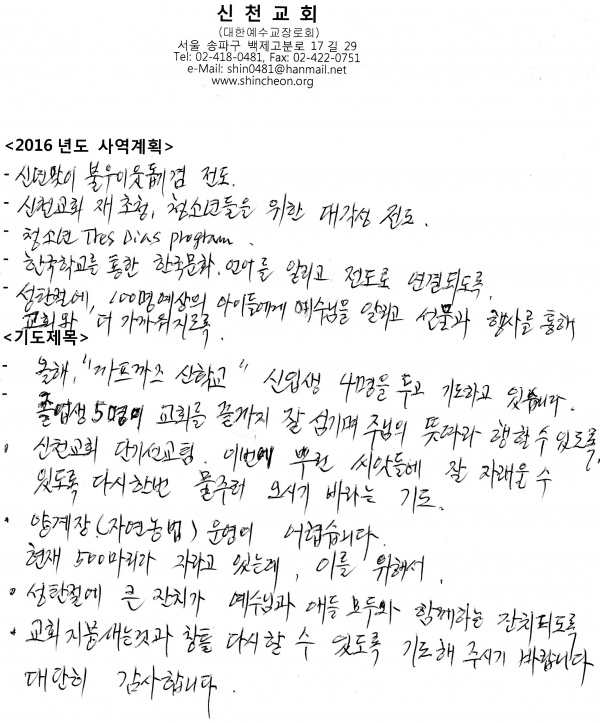 신 천 교 회
(대한예수교장로회)
서울 송파구 백제고분로 17 길 29
Tel: 02-418-0481, Fax: 02-422-0751
e-Mail: shin0481@hanmail.net
www.shincheon.org
<2016 년도 사역계획>
- 신년맞이 불우이웃돕기 겸 전도.
- 신천교회 재초청, 청소년들을 위한 대각성 전도.
- 청소년 Tres Dias program.
- 한국학교를 통한 한국문화. 언어를 알리고 전도로 연결되도록.
- 성탄절에, 100명예상의 아이들에게 예수님을 알리고 선물과 행사를 통해
교회와 더 가까워지도록.
<기도제목>
- 올해, "까프까즈 신학교" 신입생 4명을 두고 기도하고 있습니다.
- 졸업생 5명이 교회를 끝까지 잘 섬기며 주님의 뜻따라 행할 수 있도록,
• 신천교회 단기선교팀. 이번에 뿌린 씨앗들에 잘 자래울 수
있도록 다시한번 물주러 오시기 바라는 기도.
• 양계장 (자연농법) 운영이 어렵습니다.
현재 500마리가 자라고 있는데, 이를 위해서.
• 성탄절에 큰 잔치가 예수님과 애들 모두와 함께하는 잔치되도록
• 교회 지붕새는것과 창틀 다시할 수 있도록 기도해 주시기 바랍니다
대단히 감사합니다.